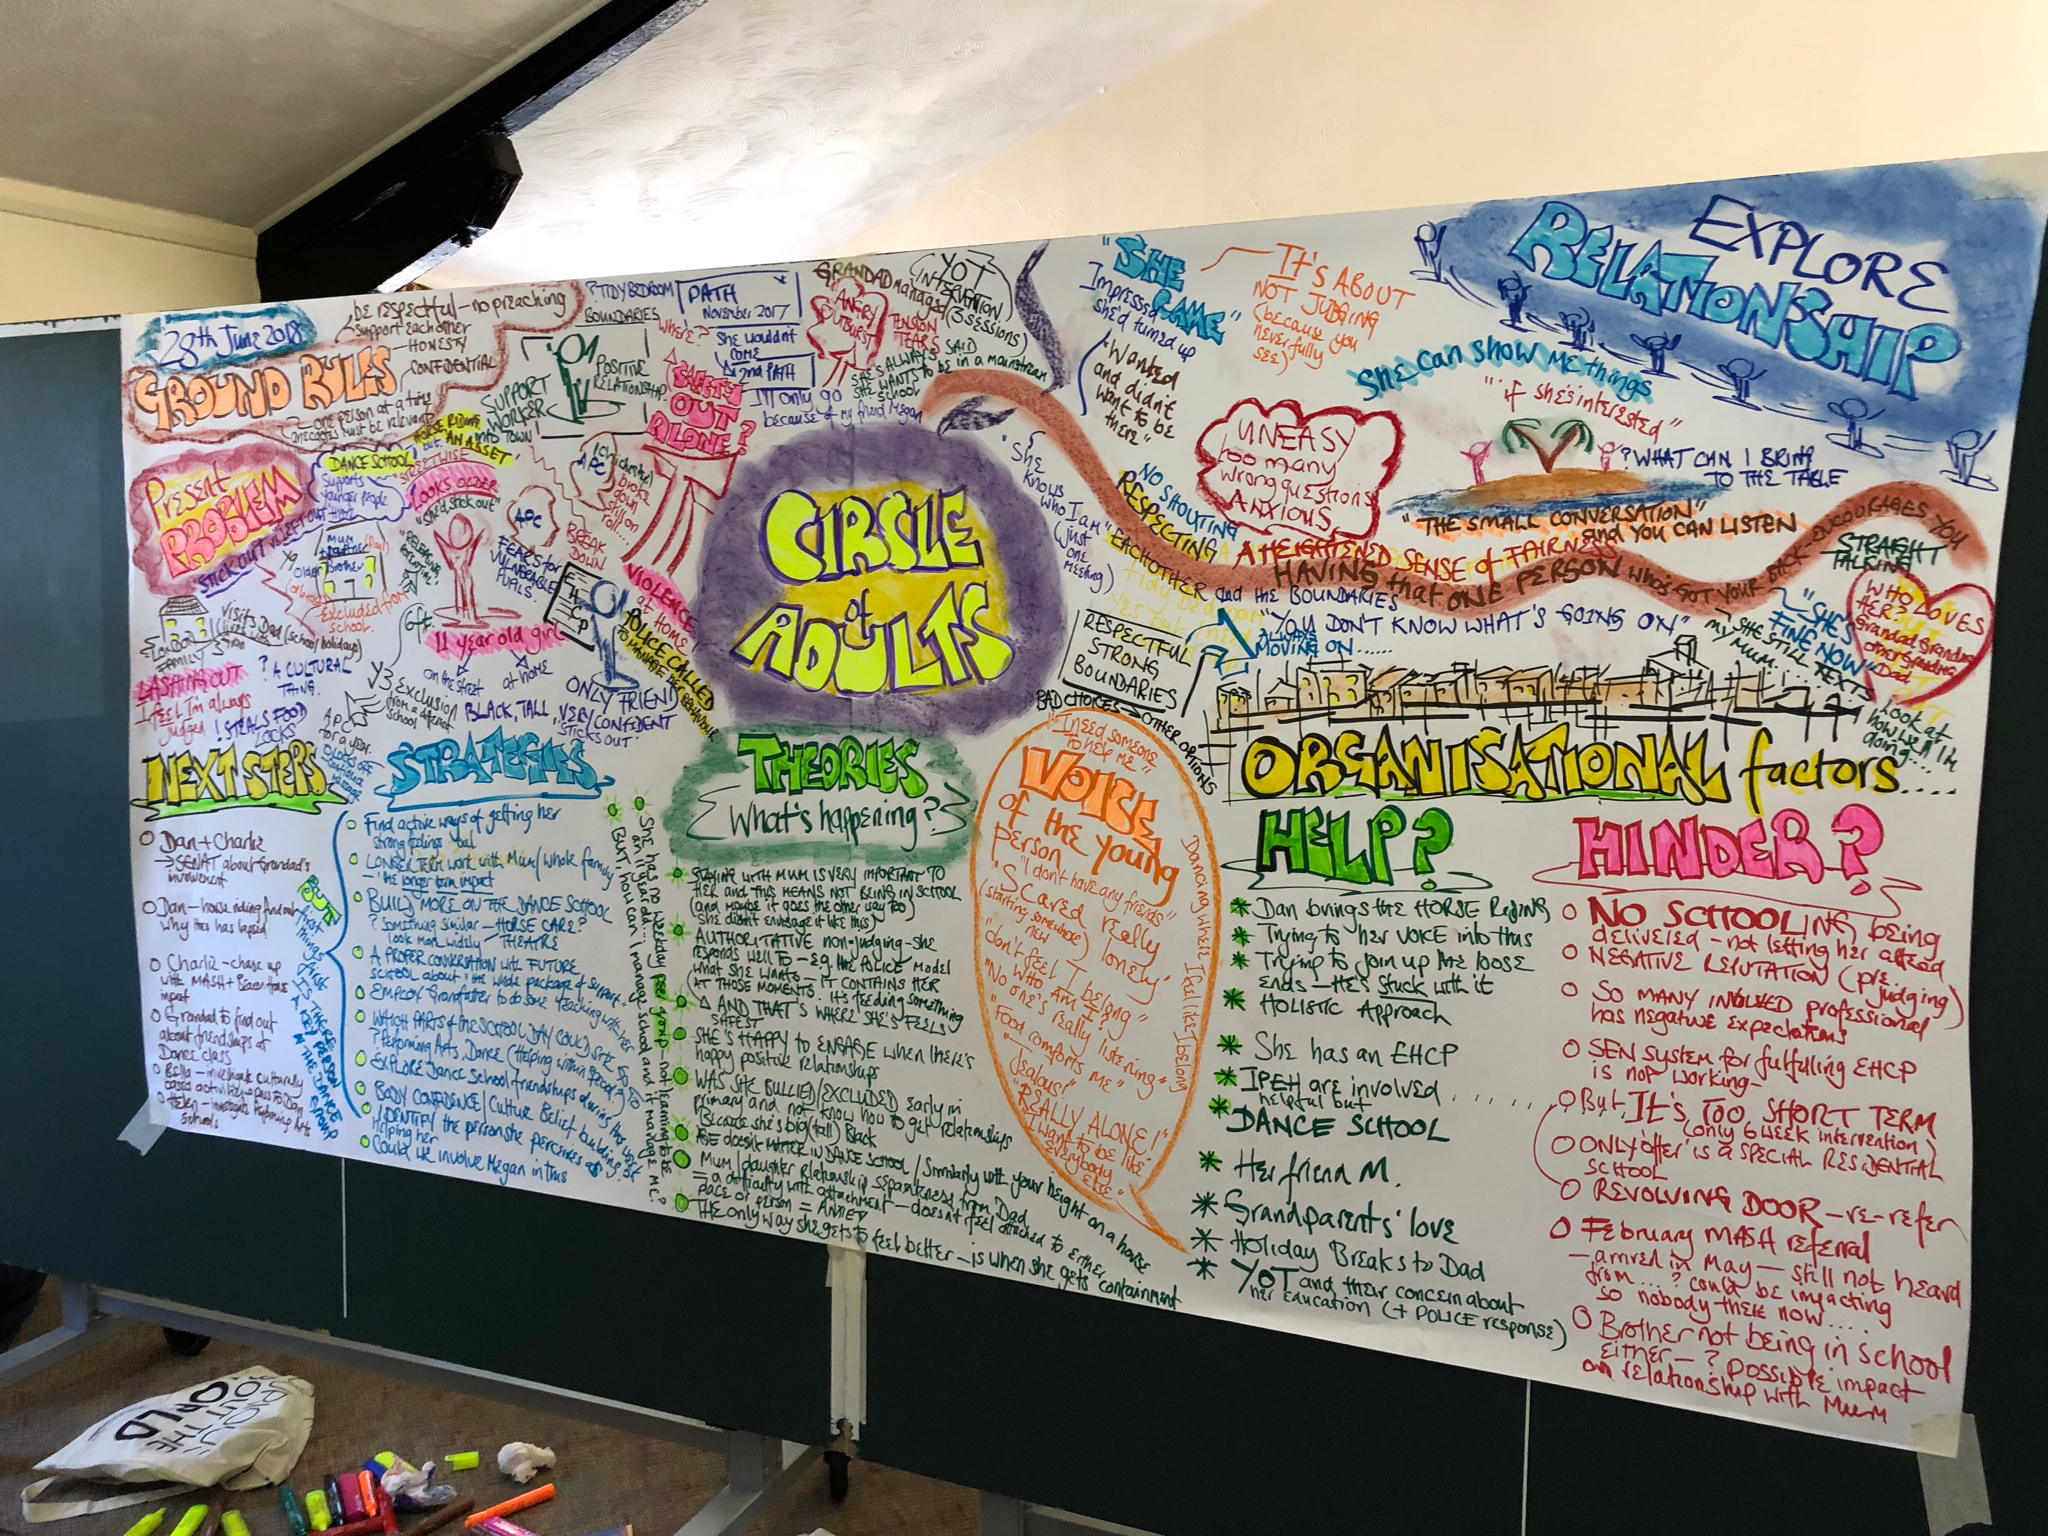 28th June 2018
GROUND RULES
be respectful - no preaching
support each other
HONESTY
CONFIDENTIAL
one person at a time
anecdotes must be relevant
Present
PROBLEM
DANCE SCHOOL
Supports
younger people
HORSE RIDING
AN ASSET"
LOOKS OLDER
"she'd stick out"
SUPPORT
WORKER
POSITIVE
RELATIONSHIP
INTO TOWN!
? TIDY BEDROOM
BOUNDARIES
PATH
November 2017
Where?
SHE WOULDN'T
COME
2nd PATH
I'll only go
because of my friend Megan
SAFETY
OUT
ALONE?
GRANDAD managed
ANGRY
OUTBURST
TENSION
TEARS
YOT
INTERVENTION
(3 SESSIONS)
SHE'S ALWAYS SAID
SHE WANTS TO be in a mainstream
SCHOOL
APC
broke
down
still on
roll....
BREAK
DOWN
APC
FEARS for
VULNERABLE
PUPILS.
EHCP
VIOLENCE
at
HOME!
POLICE CALLED
TO MANAGE HER BEHAVIOUR
ONLY FRIEND
MUM
older Brother
Excluded from
school.
6ft
11 year old girl
on the street
at home
BLACK, TALL, VERY CONFIDENT
STICKS OUT"
LONDON
FAMILY
visits Dad (school holidays)
? A CULTURAL
THING.
LASHING OUT
I feel I'm always
judged
! STEALS FOOD
LOCKS
Y3 EXCLUSION
from a different
school
APC
for a year.
CIRCLE
of
ADULTS
"SHE
CAME"
Impressed
she'd turned up
"Wanted
and didn't
want to be
there"
IT'S ABOUT
NOT JUDGING
(because you
never fully
see)
EXPLORE
RELATIONSHIP
She can show me things
"if she's interested"
UNEASY
too many
wrong questions
ANXIOUS
? WHAT CAN I BRING
TO THE TABLE
"THE SMALL CONVERSATION"
and YOU CAN LISTEN
"She
knows
who I am"
(just
one
meeting)
NO SHOUTING
RESPECTING
EACHOTHER and the BOUNDARIES
A HEIGHTENED SENSE of FAIRNESS
HAVING that ONE PERSON who's GOT YOUR BACK - ENCOURAGES YOU
STRAIGHT
TALKING
RESPECTFUL
STRONG
BOUNDARIES
BAD CHOICES → OTHER OPTIONS
ALWAYS
MOVING ON......
"YOU DON'T KNOW WHAT'S GOING ON"
"SHE STILL TEXTS
MY MUM....
"SHE'S
FINE NOW"
WHO LOVES
HER?
Grandad Grandma
other Grandma
Dad
Look at
how well I'm
doing....
NEXT STEPS
Dan + Charlie
→ SENAT about Grandad's
involvement
Dan - horse riding and
why this has lapsed
Charlie - chase up
with MASH +
impact
Grandad to find out
about friendships at
Dance class
Bella - investigate culturally
based activities + pass to Dan
Helen - investigate Performing Arts
Schools
BUT
first
things first
IS THERE
A KEY PERSON
IN THE DANCE
GROUP
STRATEGIES
Find active ways of getting her
strong feelings out
LONGER TERM work with Mum/whole family
- the longer term impact
BUILD MORE ON THE DANCE SCHOOL
? Something similar - HORSE CARE?
look more widely THEATRE
A PROPER CONVERSATION with FUTURE
SCHOOL about "the whole package of support"
EMPLOY Grandfather to do some teaching with her
WHICH PARTS of the SCHOOL DAY COULD SHE GO TO
? Performing Arts, Dance (Helping within special)
EXPLORE Dance School friendships during this week
BODY CONFIDENCE/Culture Belief building
IDENTIFY the person she perceives as
helping her
Could we involve Megan in this
She has no weekday peer group - not learning to be
an 11 year old..
BUT, how can I manage school and it manage me?
THEORIES
What's happening?
STAYING WITH MUM IS VERY IMPORTANT TO
HER and THIS MEANS NOT BEING IN SCHOOL
(and maybe it goes the other way too)
She didn't envisage it like this)
AUTHORITATIVE non-judging - she
responds well to - e.g. the POLICE model
what she wants - IT CONTAINS HER
AT THOSE MOMENTS. It's feeding something
AND THAT'S WHERE SHE'S FEELS
SAFEST
SHE'S HAPPY to ENGAGE when there's
happy positive relationships
WAS SHE BULLIED/EXCLUDED early in
Primary and not know how to get relationships
Because she's big (tall) Black
AGE doesn't MATTER IN DANCE SCHOOL/Similarly with your height on a horse
Mum/daughter Relationship separateness from Dad
= a difficulty with attachment - doesn't feel attached to either
place or person = ANXIETY
THE only way she gets to feel better - is when she gets containment
"I need someone
to help me"
VOICE
of the young
person
"I don't have any friends"
"Scared really
(starting somewhere new)
lonely"
"don't feel I belong"
"Who am I?"
"No one's really listening"
"Food comforts me"
"Jealous!"
"REALLY ALONE!"
"I want to be like
everybody
else"
Dancing where I feel like I belong
ORGANISATIONAL factors....
HELP?
Dan brings the HORSE RIDING
Trying to her VOICE into this
Trying to join up the loose
ends - He's stuck with it
HOLISTIC Approach
She has an EHCP
IPEH are involved
helpful but ......
DANCE SCHOOL
Her friend M.
Grandparents' love
Holiday Breaks to Dad
YOT and their concern about
her education (+ POLICE response)
HINDER?
NO SCHOOLING being
delivered - not letting her attend
NEGATIVE REPUTATION (pre judging)
SO MANY INVOLVED professional
has negative expectations
SEN system for fulfilling EHCP
is not working-
But IT'S TOO SHORT TERM
(only 6 week intervention)
ONLY offer is a SPECIAL RESIDENTIAL
SCHOOL
REVOLVING DOOR - re-refer
February MASH referral
- arrived in May - still not heard
from...? could be impacting
so nobody there now....
Brother not being in school
either - ? possible impact
on relationship with Mum